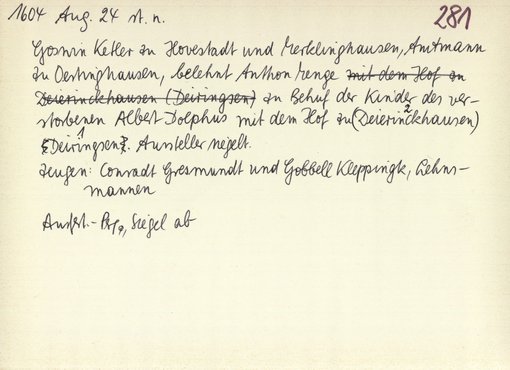 1604 Aug. 24 st. n.
281
Goswin Ketler zu Hovestadt und Merklinghausen, Amtmann
zu Oestinghausen, belehnt Anthon Menge mit dem Hof zu
Deierinckhausen (Deiringsen) zu Behuf der Kinder des ver-
storbenen Albert Dolphus mit dem Hof zu (Deierinckhausen) 2
(Deiringsen) 1. Aussteller siegelt.
Zeugen: Conradt Gresmundt und Gobbell Kleppingk, Lehns-
mannen
Ausf.- Siegel ab